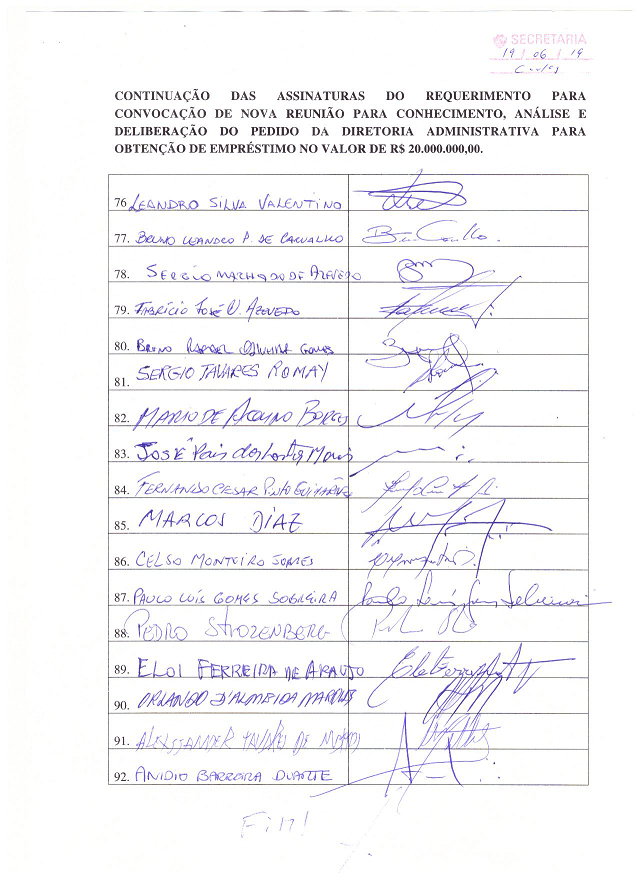 SECRETARIA
19 / 06 / 19
CONTINUAÇÃO DAS ASSINATURAS DO REQUERIMENTO PARA
CONVOCAÇÃO DE NOVA REUNIÃO PARA CONHECIMENTO, ANÁLISE E
DELIBERAÇÃO DO PEDIDO DA DIRETORIA ADMINISTRATIVA PARA
OBTENÇÃO DE EMPRÉSTIMO NO VALOR DE R$ 20.000.000,00.
76 LEANDRO SILVA VALENTINO
77. BRUNO LEANDRO P. DE CARVALHO
78. SERGIO MACHADO DE AZEVEDO
79. FABRÍCIO JOSÉ V. AZEVEDO
80. BRUNO RAFAEL OLIVEIRA GOMES
81. SERGIO TAVARES ROMAY
82. MARIO DE BORGES
83. JOSÉ Pais dos Santos
84. FERNANDO CESAR PINTO GUIMARÃES
85. MARCOS DÍAZ
86. CELSO MONTEIRO SOARES
87. PAULO LUÍS GOMES SOBREIRA
88. PEDRO STROZENBERG
89. ELOI FERREIRA DE ARAUJO
90. ORLANDO D'ALMEIDA MARQUES
91. DE
92. ANIDIO BARBOSA DUARTE
Fim!